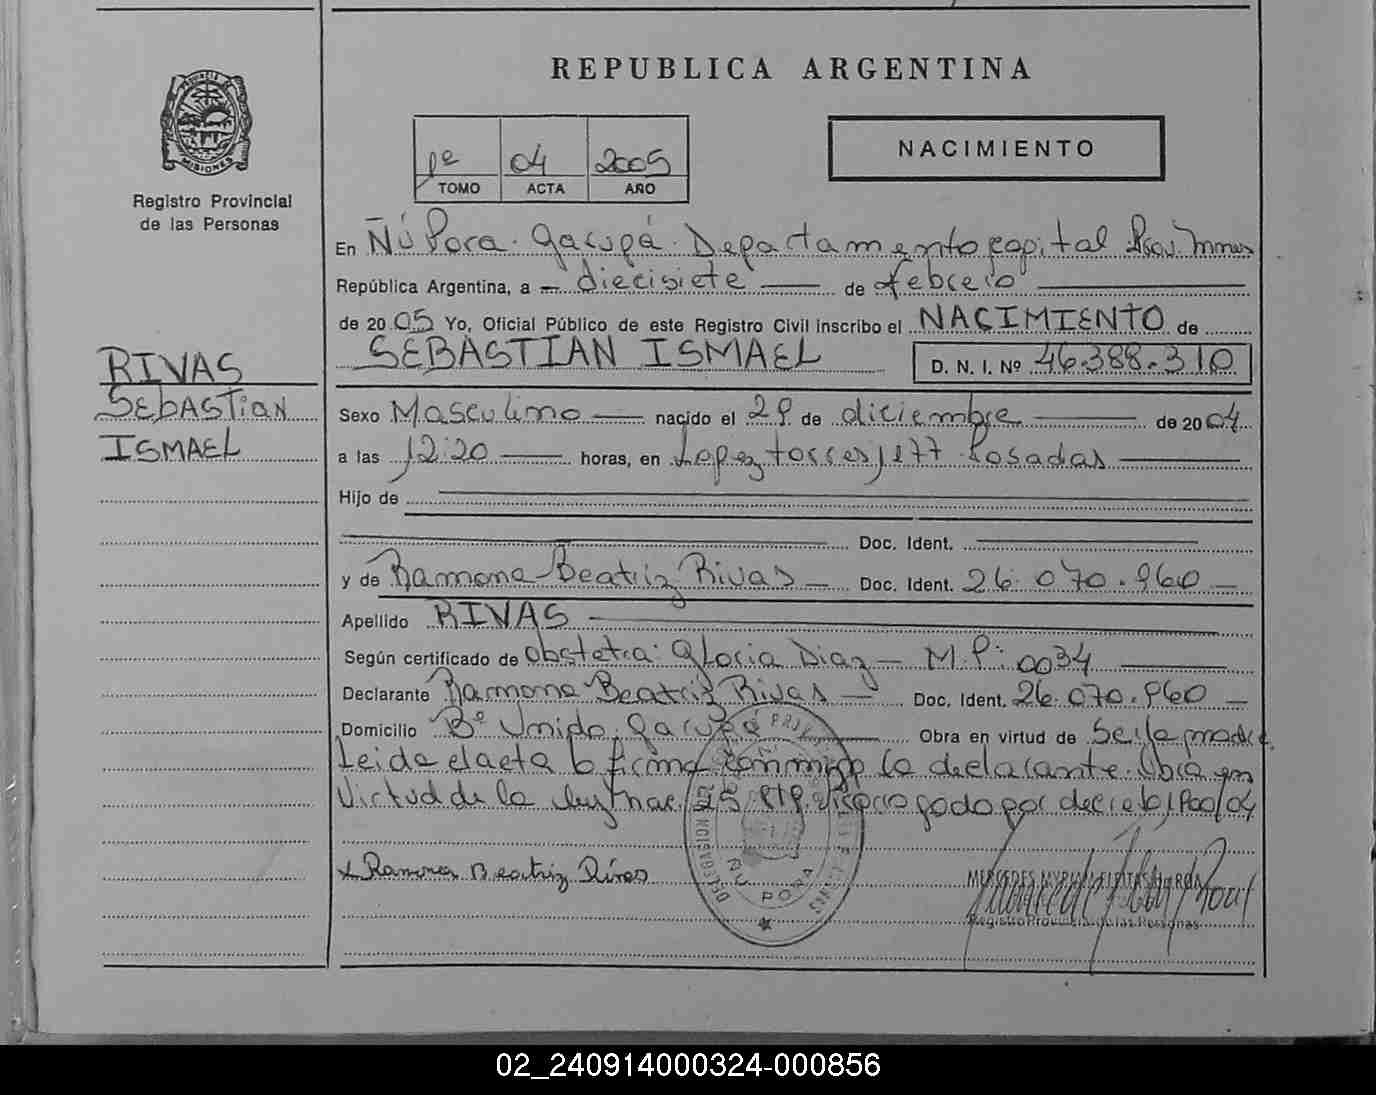 REPUBLICA ARGENTINA
PROVINCIA DE
MISIONES
Registro Provincial
de las Personas
1º 04 2005
TOMO ACTA AÑO
NACIMIENTO
En Ñú Pora. Garupá. Departamento capital Prov. Mnes
República Argentina, a diecisiete de febrero
de 2005 Yo, Oficial Público de este Registro Civil inscribo el NACIMIENTO de
SEBASTIAN ISMAEL D. N. I. Nº 46.388.310
RIVAS
SEBASTIAN
ISMAEL
Sexo Masculino nacido el 29 de diciembre de 2004
a las 12:20 horas, en Lopez torres 1177 Posadas
Hijo de
Doc. Ident.
y de Ramona Beatriz Rivas Doc. Ident. 26.070.960
Apellido RIVAS
Según certificado de obstetra: Gloria Diaz M.P: 0034
Declarante Ramona Beatriz Rivas Doc. Ident. 26.070.960
Domicilio Bº Unido. Garupá Obra en virtud de Ser la madre.
Leida el acta la firma conmigo la declarante. Obra en
Virtud de la Ley Nac. 25.819 prorrogado por decreto 1900/04
x Ramona Beatriz Rivas
ÑU PORA
MERCEDES MYRIAM
Registro Provincial de las Personas
02_240914000324-000856